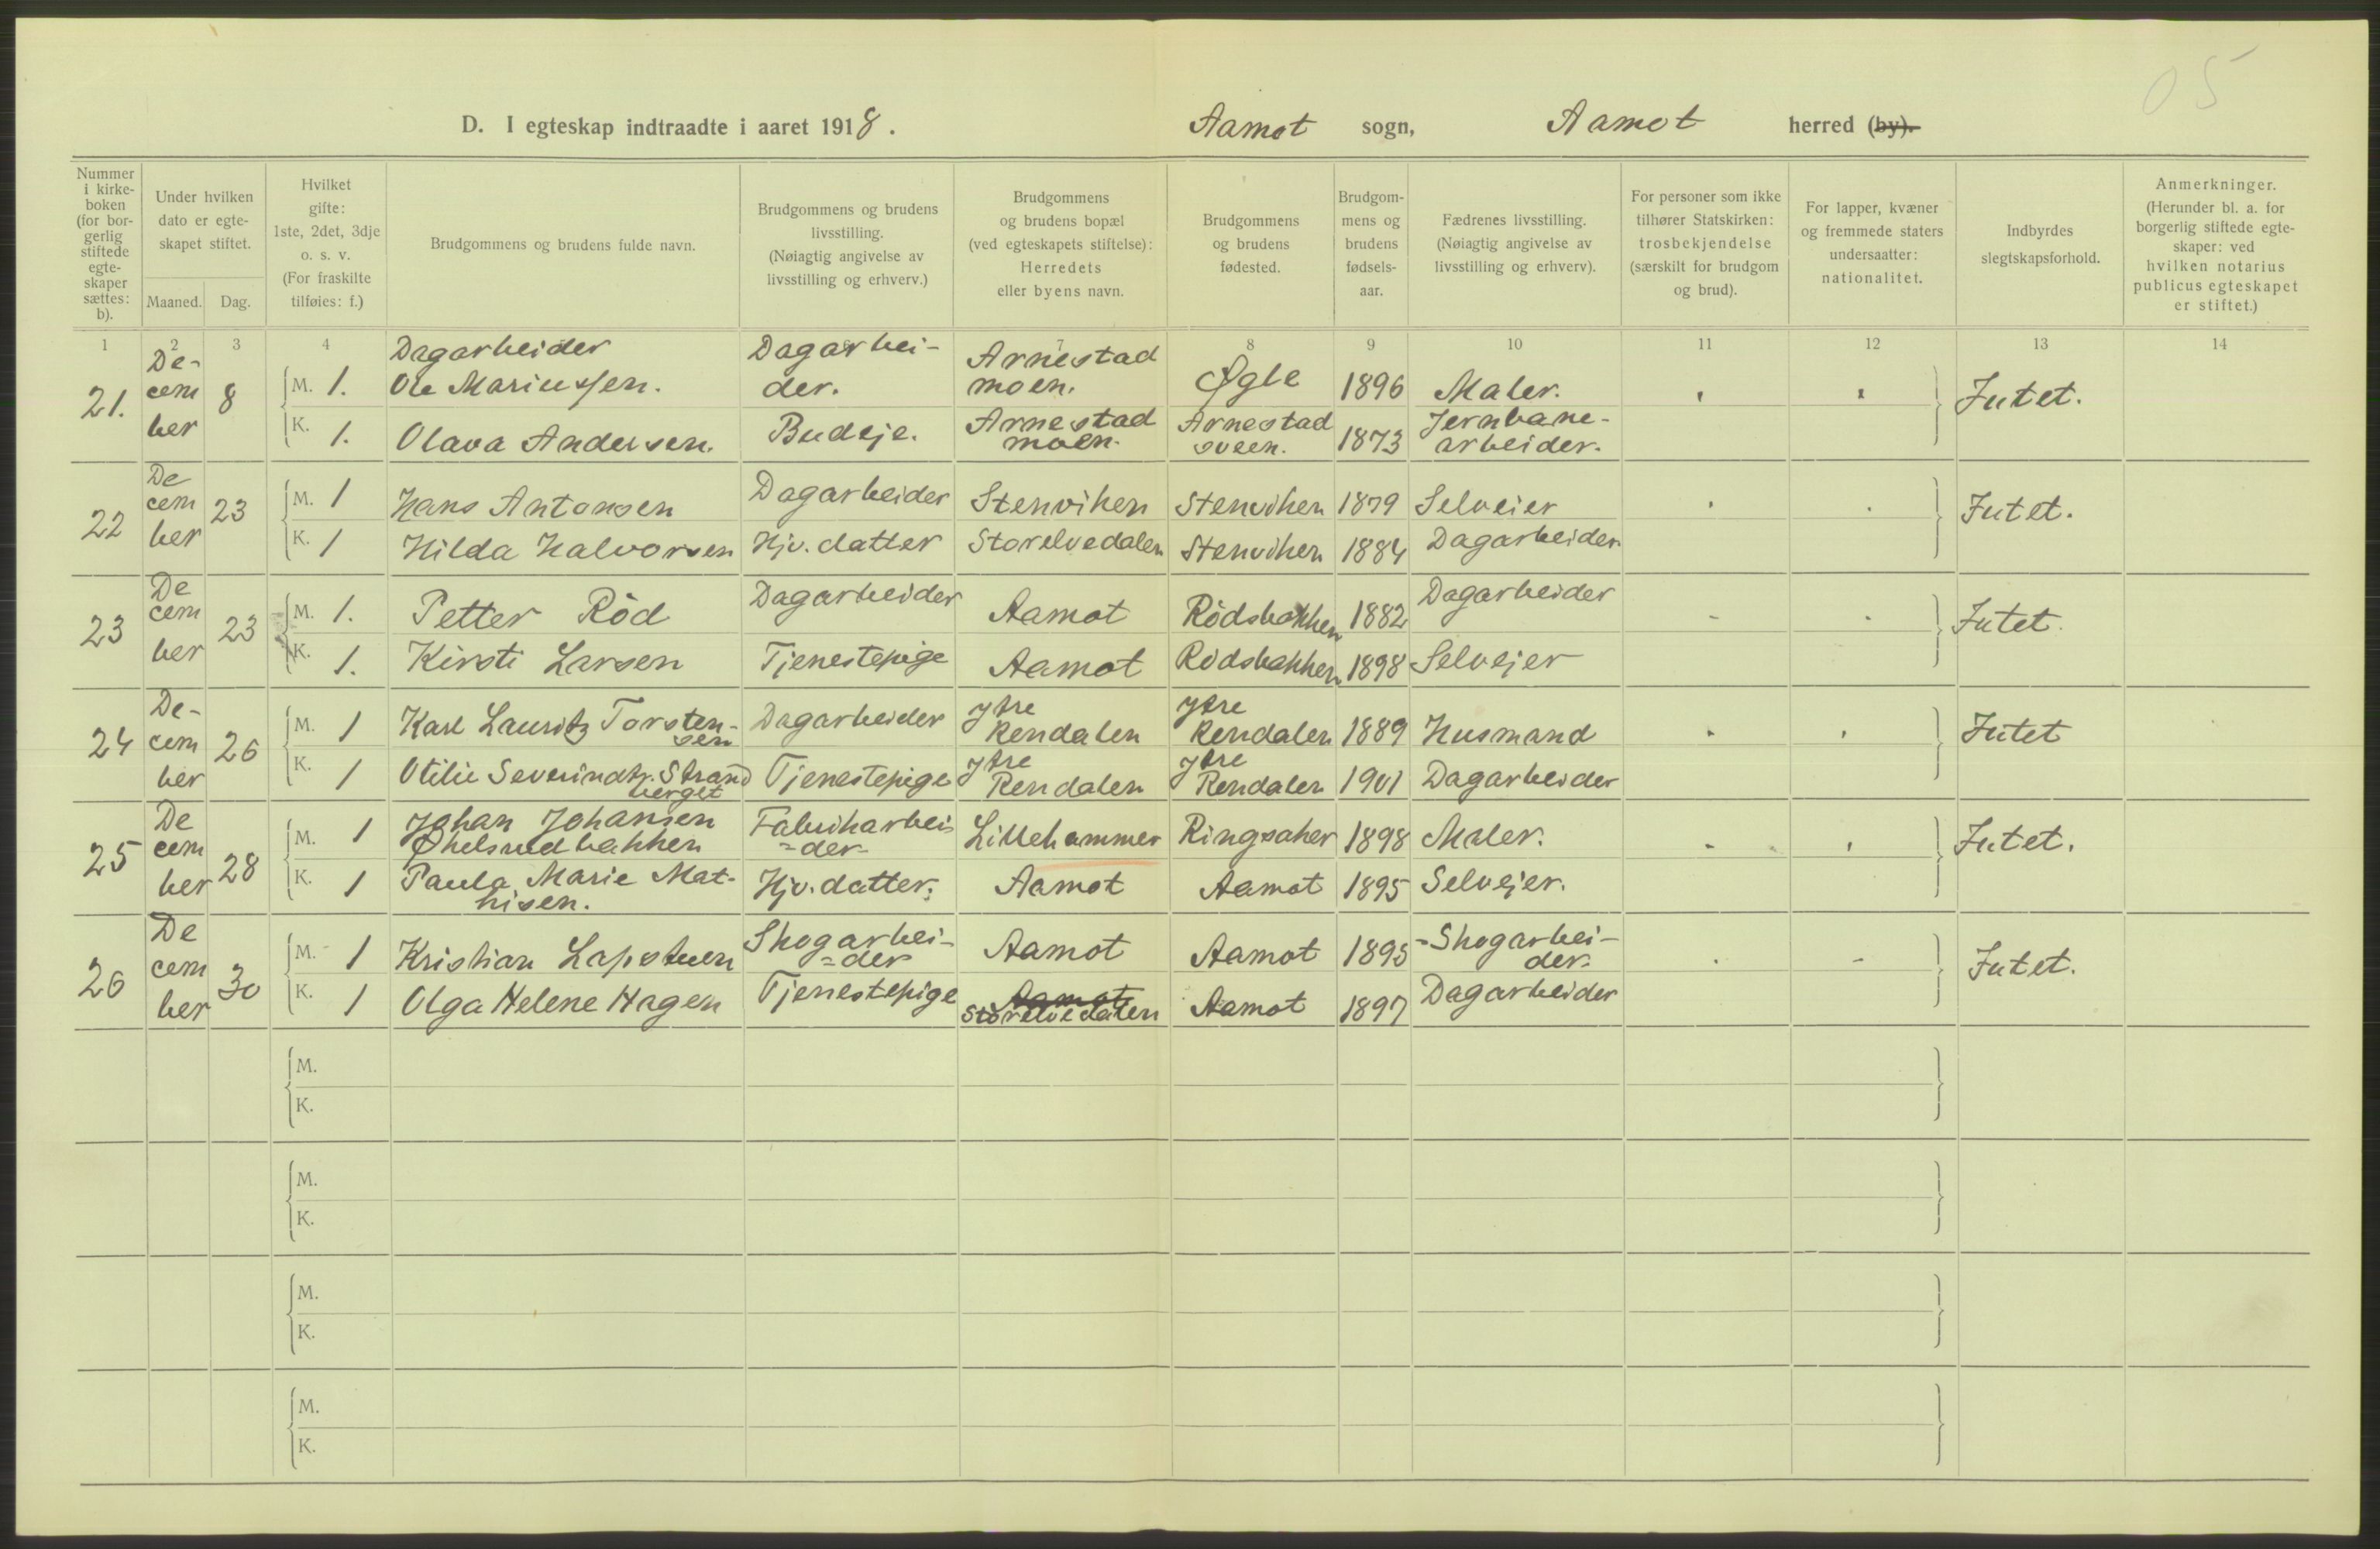 05
D. I egteskap indtraadte i aaret 1918. Aamot sogn, Aamot herred (by).
Nummer i kirke-boken (for bor-gerlig stiftede egte-skaper sættes: b).
Under hvilken dato er egte-skapet stiftet.
Maaned. Dag.
Hvilket gifte: 1ste, 2det, 3dje o. s. v. (For fraskilte tilføies: f.)
Brudgommens og brudens fulde navn.
Brudgommens og brudens livsstilling. (Nøiagtig angivelse av livsstilling og erhverv.)
Brudgommens og brudens bopæl (ved egteskapets stiftelse): Herredets eller byens navn.
Brudgommens og brudens fødested.
Brudgom-mens og brudens fødsels-aar.
Fædrenes livsstilling. (Nøiagtig angivelse av livsstilling og erhverv).
For personer som ikke tilhører Statskirken: trosbekjendelse (særskilt for brudgom og brud).
For lapper, kvæner og fremmede staters undersaatter: nationalitet.
Indbyrdes slegtskapsforhold.
Anmerkninger. (Herunder bl. a. for borgerlig stiftede egte-skaper: ved hvilken notarius publicus egteskapet er stiftet.)
1 2 3 4 7 8 9 10 11 12 13 14
21. De-cem ber 8 M. 1. Dagarbeider Ole Mariussen. Dagarbei-der. Arnestad moen. Øgle 1896 Maler. Intet.
K. 1. Olava Andersen. Budeje. Arnestad moen. Arnestad sveen. 1873 Jernbane-arbeider.
22 De cem ber 23 M. 1 Hans Antonsen Dagarbeider Stenviken Stenviken 1879 Selveier Intet.
K. 1 Hilda Halvorsen Hjv. datter Storelvedalen Stenviken 1884 Dagarbeider
23 De cem ber 23 M. 1. Petter Röd Dagarbeider Aamot Rödsbakken 1882 Dagarbeider Intet.
K. 1. Kirsti Larsen Tjenestepige Aamot Rödsbakken 1898 Selvejer
24 De-cem ber 26 M. 1 Karl Lauritz Torsten-sen Dagarbeider Ytre Rendalen Ytre Rendalen 1889 Husmand Intet
K. 1 Otilie Severindtr. Strand berget Tjenestepige Ytre Rendalen Ytre Rendalen 1901 Dagarbeider
25 De cem ber 28 M. 1 Johan Johansen Økelsrudbakken Fabrikarbei=der Lillehammer Ringsaker 1898 Maler. Intet.
K. 1 Paula Marie Mat-hisen. Hjv. datter. Aamot Aamot 1895 Selvejer.
26 De cem ber 30 M. 1 Kristian Lapstuen Skogarbei-=der Aamot Aamot 1895 Skogarbei-der. Intet.
K. 1 Olga Helene Hagen Tjenestepige Aamot Storelvedalen Aamot 1897 Dagarbeider
M.
K.
M.
K.
M.
K.
M.
K.